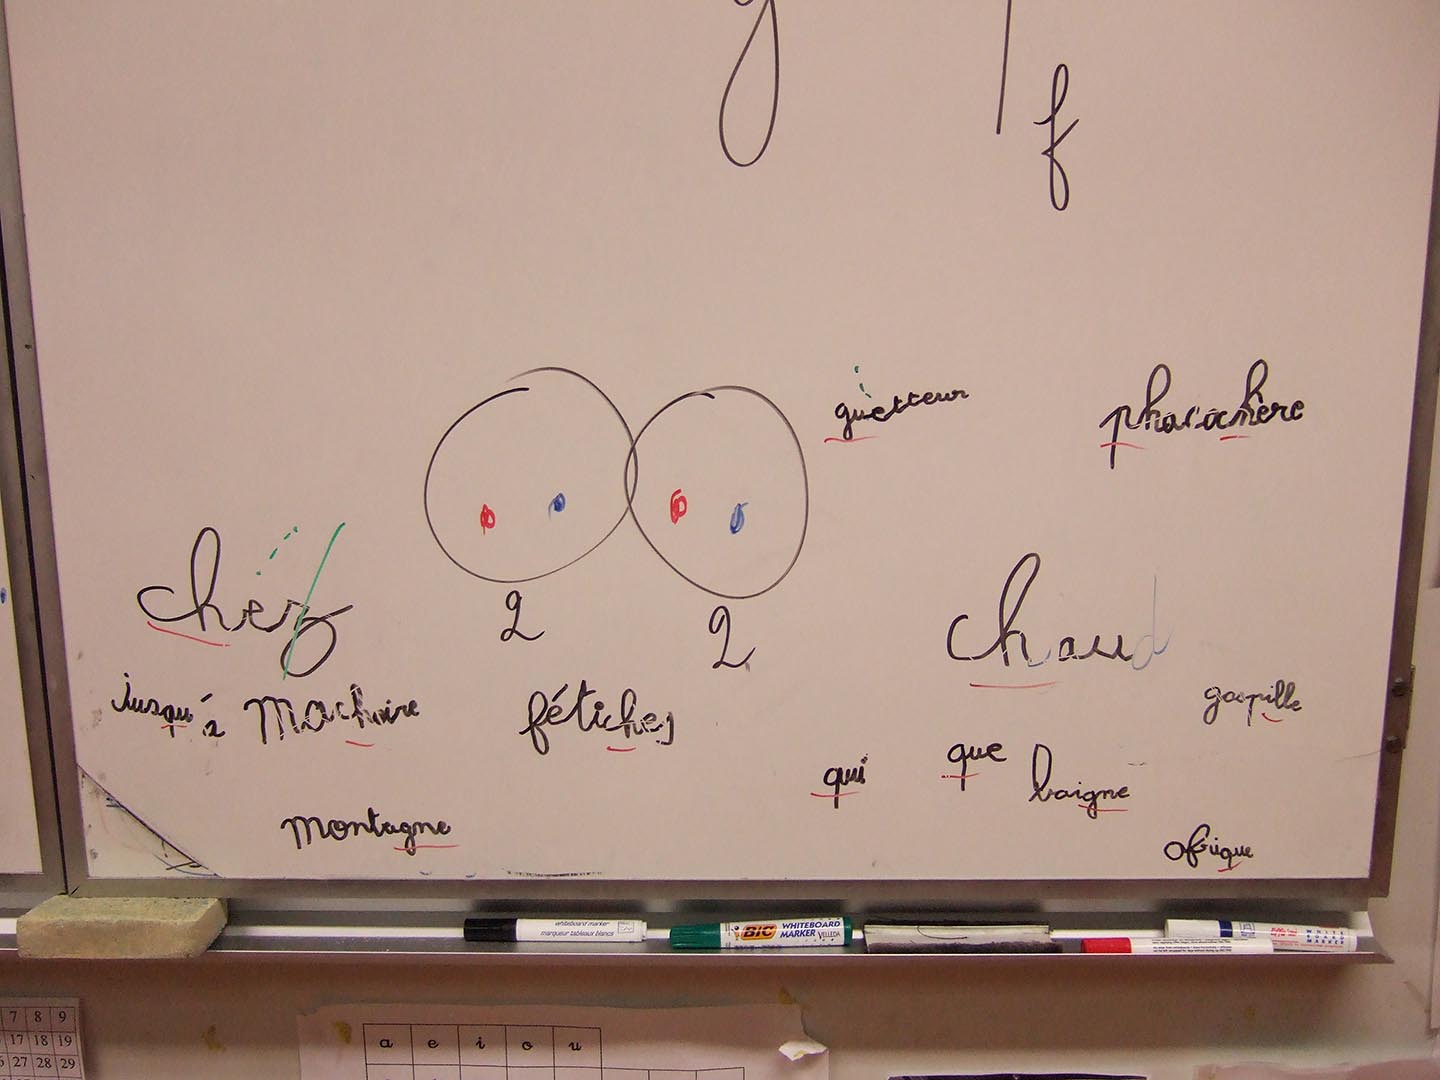 g
f
guetteur
chez
2
2
chaud
jusqu'à
machoire
fétiches
gaspille
qui
que
baigne
montagne
afrique
whiteboard marker
marqueur tableaux blancs
BIC WHITEBOARD
MARKER VELLEDA
WHITE
BOARD
MARKER
7 8 9
17 18 19
27 28 29
a e i o u